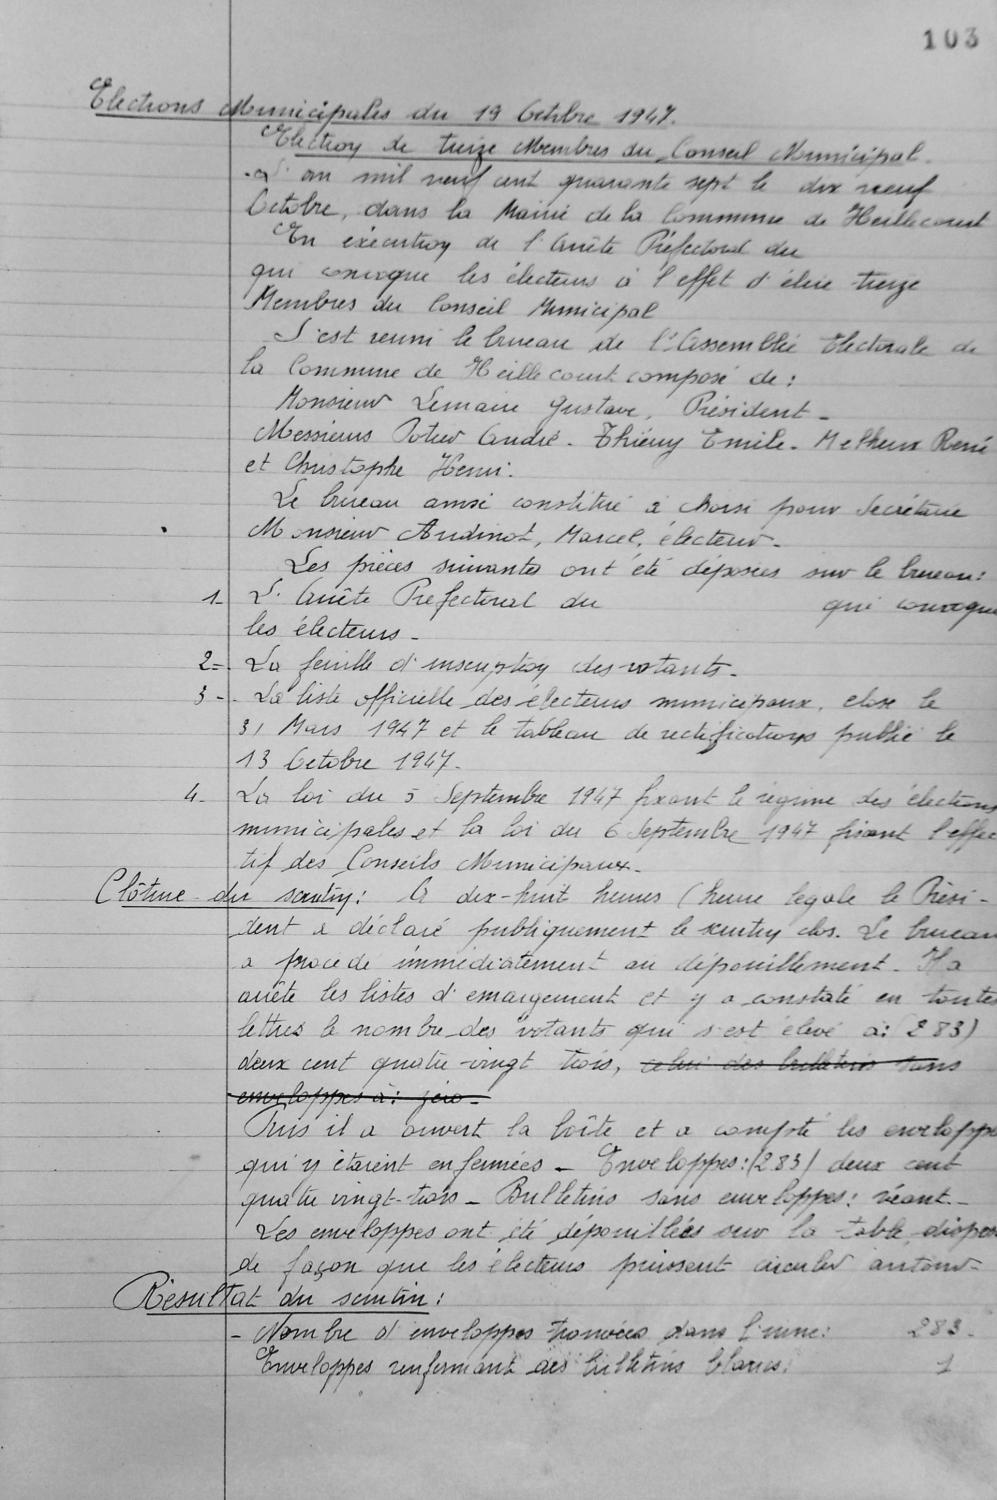 103
Elections Municipales du 19 Octobre 1947.
Election de treize Membres du Conseil Municipal.
L'an mil neuf cent quarante sept le dix neuf
Octobre, dans la Mairie de la Commune de Heillecourt
En exécution de l'Arrêté Préfectoral du
qui convoque les électeurs à l'effet d'élire treize
Membres du Conseil Municipal
S'est reuni le bureau de l'Assemblée Electorale de
la Commune de Heillecourt composé de :
Monsieur Lemaire Gustave, Président -
Messieurs André - Thiéry Emile - René
et Christophe Henri.
Le bureau ainsi constitué à choisi pour Secrétaire
Monsieur Audinot, Marcel, électeur -
Les pièces suivantes ont été déposées sur le bureau :
1- L'Arrêté Préfectoral du qui convoque
les électeurs -
2- La feuille d'inscription des votants -
3- La liste officielle des électeurs municipaux, close le
31 Mars 1947 et le tableau de rectifications publié le
13 Octobre 1947 -
4- La loi du 5 Septembre 1947 fixant le régime des élections
municipales et la loi du 6 Septembre 1947 fixant l'effec
tif des Conseils Municipaux -
Clôture du scrutin : A dix-huit heures (heure légale le Prési-
dent a déclaré publiquement le scrutin clos. Le bureau
a procédé immédiatement au dépouillement - Il a
arrêté les listes d'emargement et y a constaté en toutes
lettres le nombre des votants qui s'est élevé à : (283)
deux cent quatre-vingt trois, celui des bulletins sans
enveloppes à : zéro -
Puis il a ouvert la boîte et a compté les enveloppe
qui y étaient enfermées - Enveloppes : (283) deux cent
quatre vingt-trois - Bulletins sans enveloppes : néant -
Les enveloppes ont été dépouillées sur la table, dispos
de façon que les électeurs puissent circuler autour -
Résultat du scrutin :
- Nombre d'enveloppes trouvées dans l'urne : 283 -
Enveloppes renfermant des bulletins blancs : 1